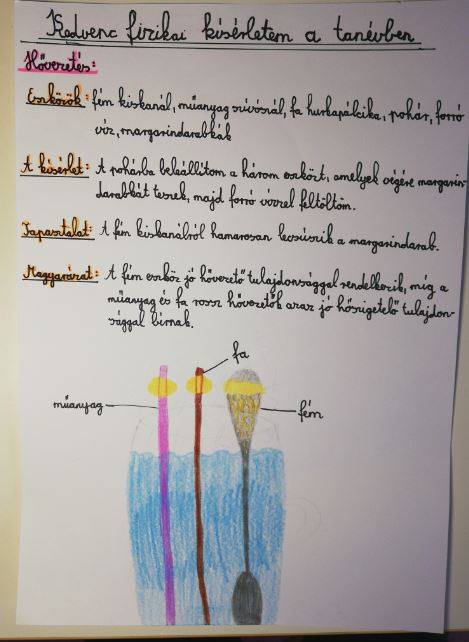 Kedvenc fizikai kísérletem a tanévben
Hővezetés:
Eszközök: fém kiskanál, műanyag szívószál, fa hurkapálcika, pohár, forró
víz, margarindarabkák
A kísérlet: A pohárba beleállítom a három eszközt, amelyek végére margarin-
darabkát teszek, majd forró vízzel feltöltöm.
Tapasztalat: A fém kiskanálról hamarosan lecsúszik a margarindarab.
Magyarázat: A fém eszköz jó hővezető tulajdonsággal rendelkezik, míg a
műanyag és fa rossz hővezetők azaz jó hőszigetelő tulajdon-
sággal bírnak.
fa
műanyag
fém